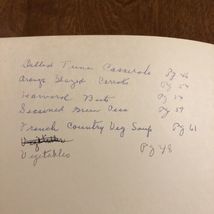 Deviled Tuna Casserole Pg 46
Orange Glazed Carrots Pg 54
Harvard Beets Pg 54
Seasoned Green Peas Pg 59
French Country Veg Soup Pg 61
Vegetables
Vegetables Pg 48